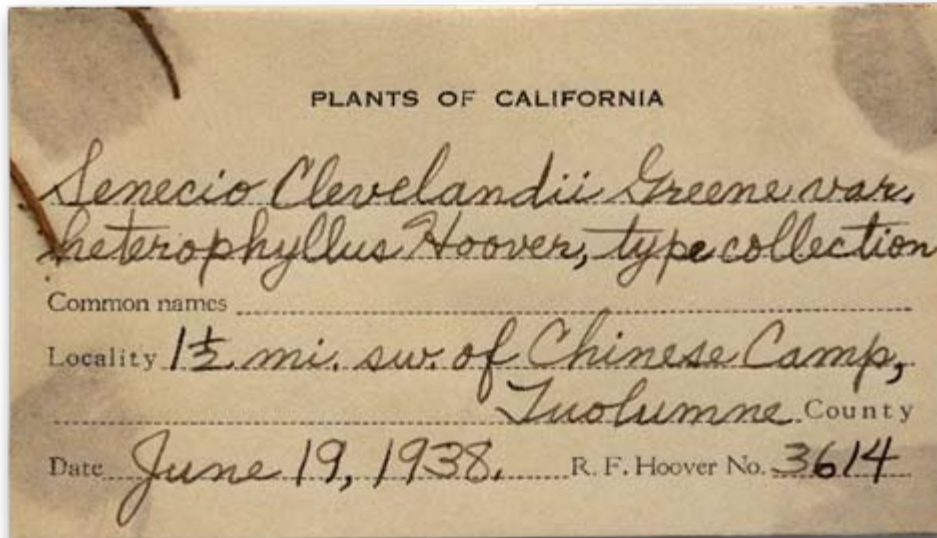 PLANTS OF CALIFORNIA
Senecio Clevelandii Greene var.
heterophyllus Hoover, type collection
Common names
Locality 1½ mi. sw. of Chinese Camp,
Tuolumne County
Date June 19, 1938. R. F. Hoover No. 3614